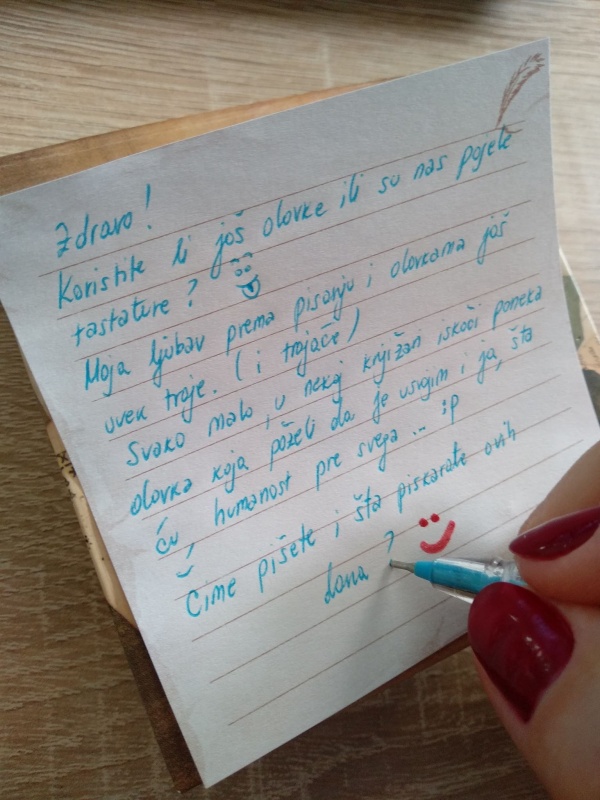 Zdravo!
Koristite li još olovke ili su nas pojele
tastature?
Moja ljubav prema pisanju i olovkama još
uvek traje. (i trajaće)
Svako malo, u nekoj knjižari iskoči poneka
olovka koja poželi da je usvojim i ja, šta
ću, humanost pre svega... :P
Čime pišete i šta piskarate ovih
dana?